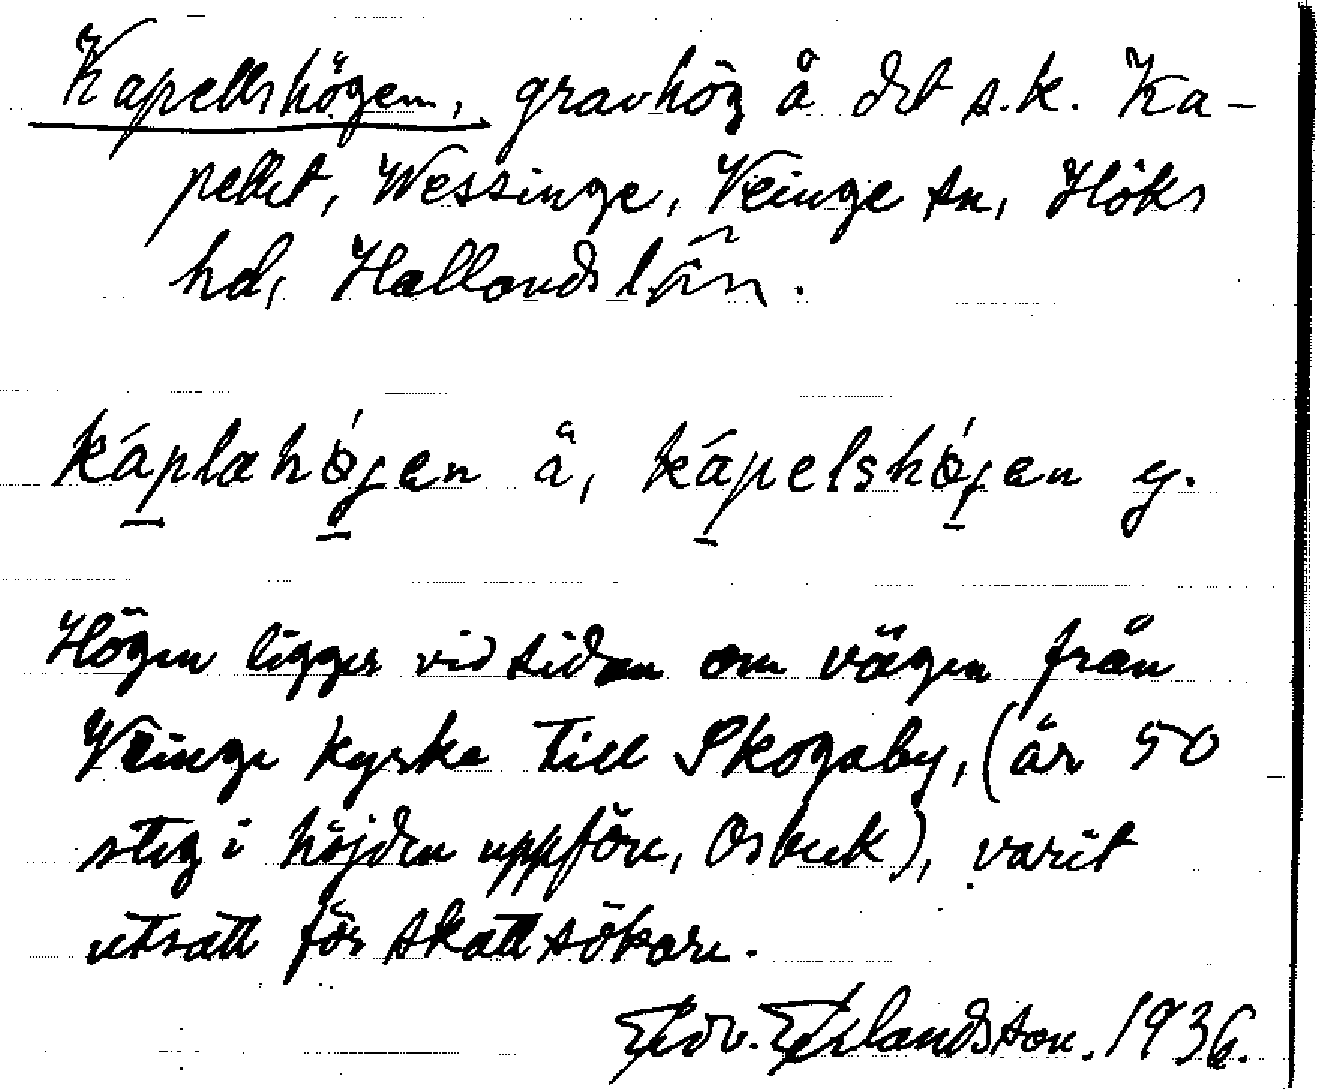 Kapellshögen, gravhög å det s.k. Ka-
pellet, Wessinge, Veinge sn, Höks
hd, Hallands län.
káplahǿjen ä, kápelshǿjen y.
Högen ligger vid sidan om vägen från
Veinge kyrka till Skogaby, (är 50
steg i höjden uppför, Osbeck), varit
utsatt för skattsökare.
Edv. Erlandsson. 1936.